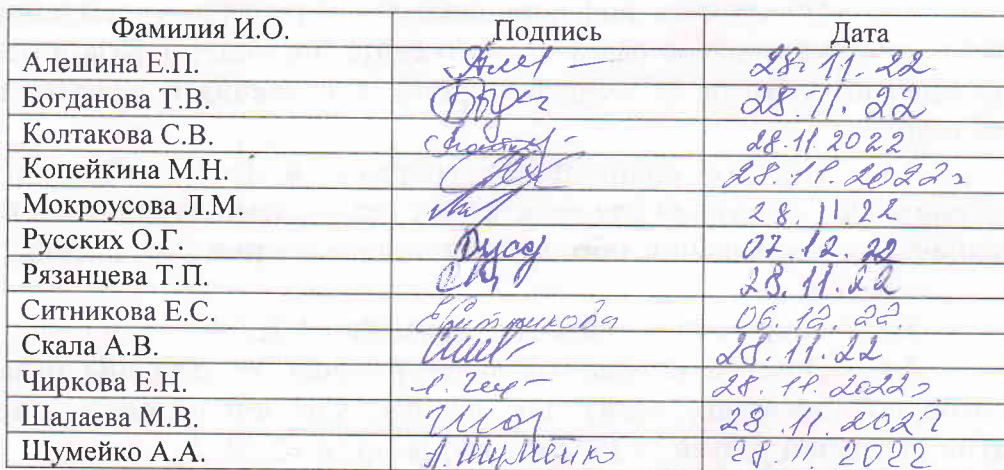 Фамилия И.О. Подпись Дата
Алешина Е.П. 28.11.22
Богданова Т.В. 28.11.22
Колтакова С.В. 28.11.2022
Копейкина М.Н. 28.11.2022г
Мокроусова Л.М. 28.11.22
Русских О.Г. 07.12.22
Рязанцева Т.П. 28.11.22
Ситникова Е.С. ЕСитникова 06.12.22.
Скала А.В. 28.11.22
Чиркова Е.Н. 28.11.2022г
Шалаева М.В. 28.11.2022
Шумейко А.А. А.Шумейко 28.11.2022